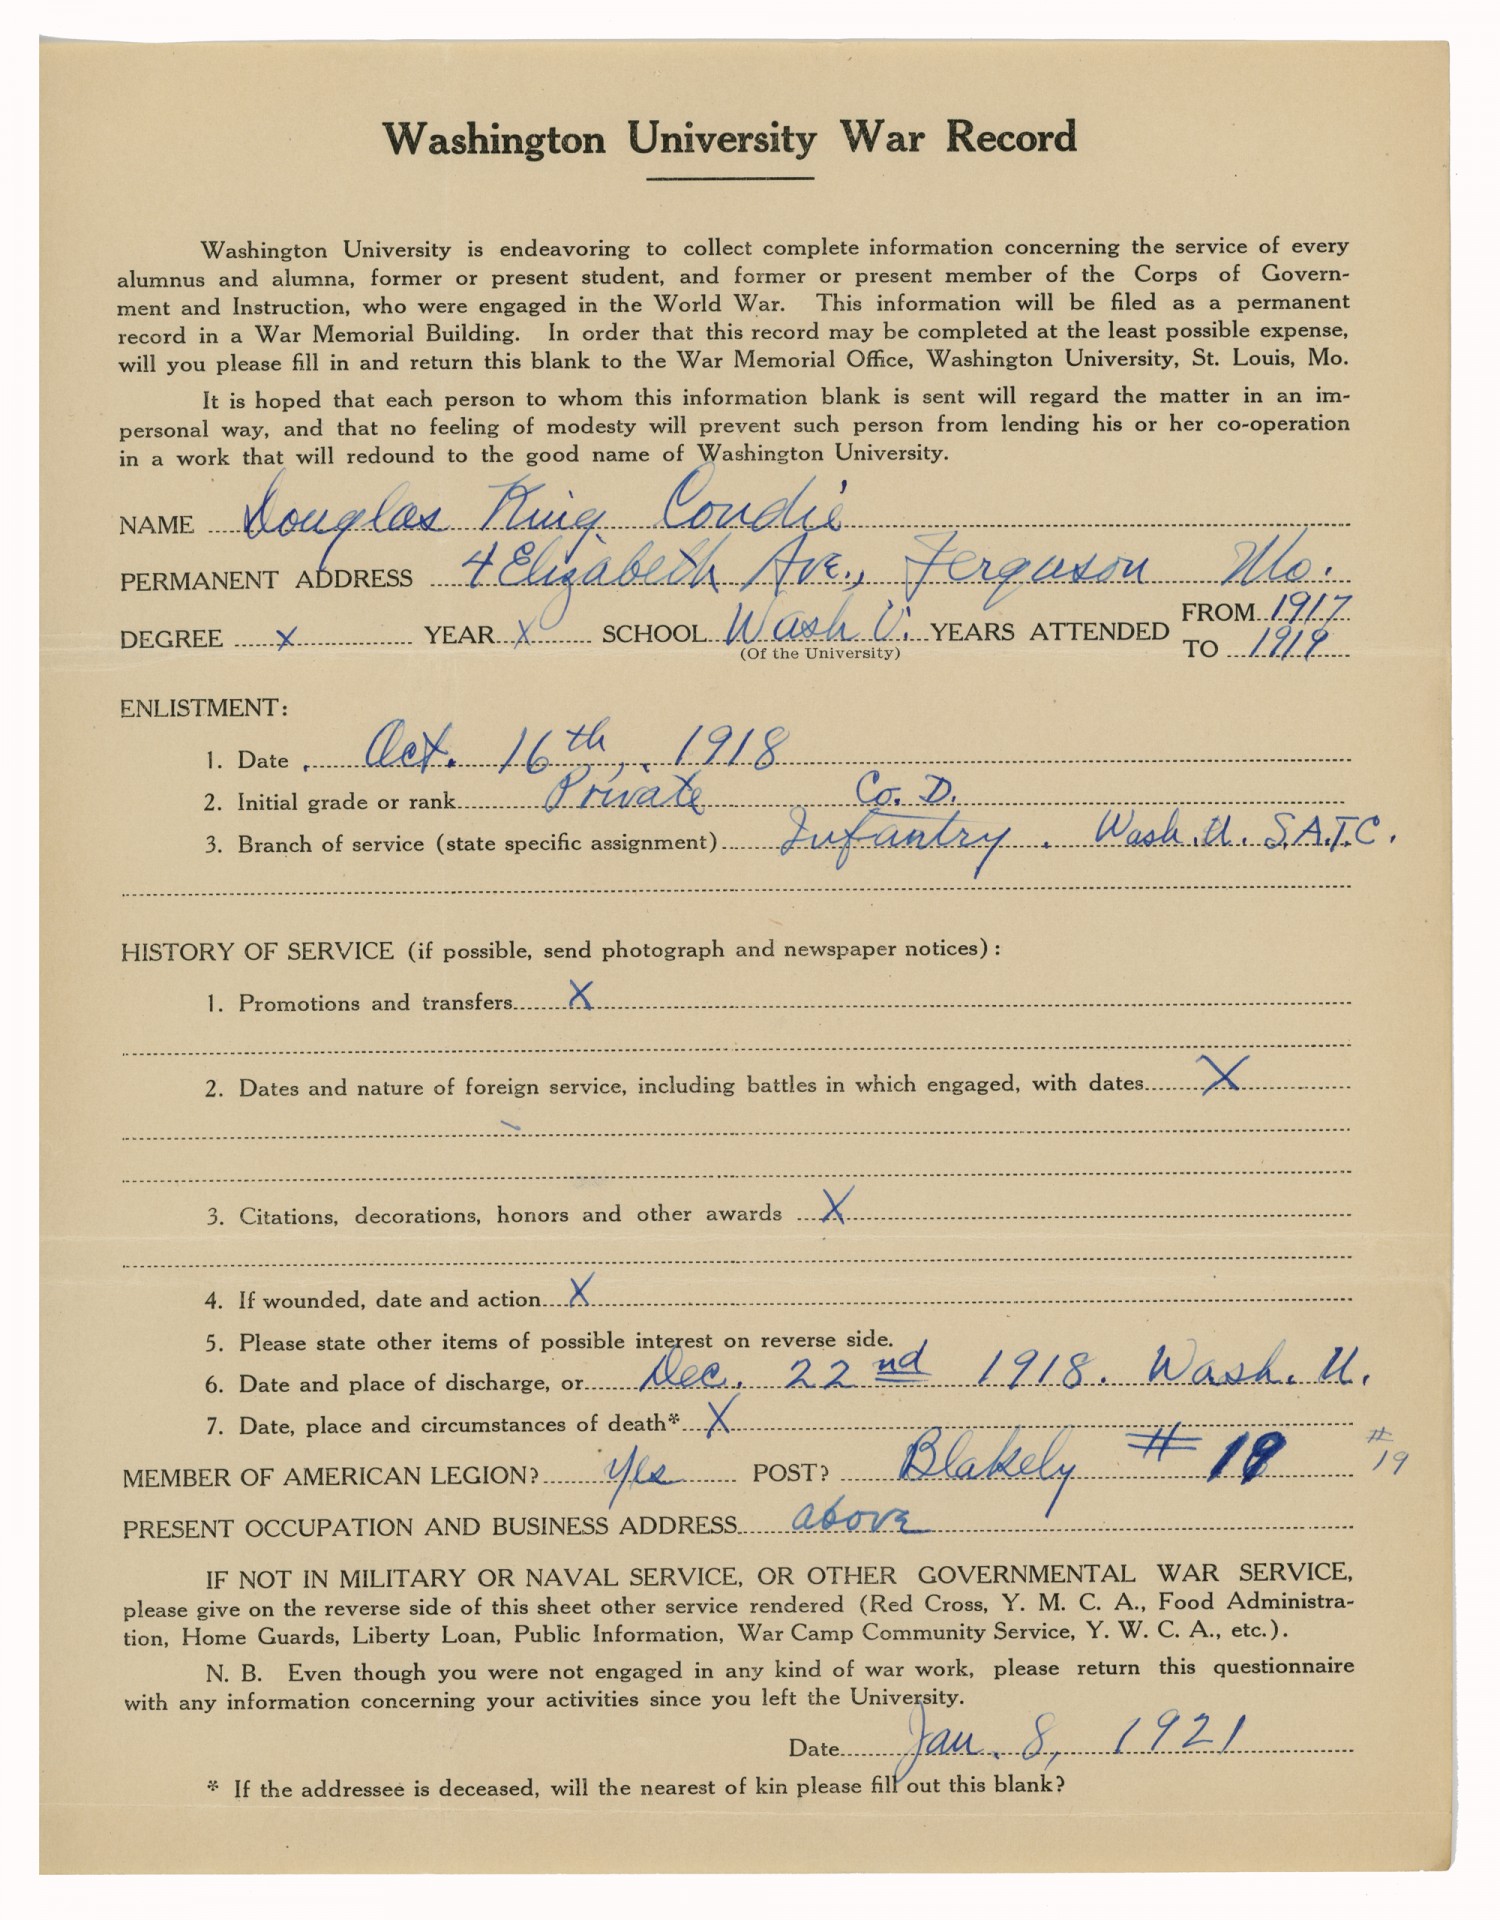 Washington University War Record
Washington University is endeavoring to collect complete information concerning the service of every
alumnus and alumna, former or present student, and former or present member of the Corps of Govern-
ment and Instruction, who were engaged in the World War. This information will be filed as a permanent
record in a War Memorial Building. In order that this record may be completed at the least possible expense,
will you please fill in and return this blank to the War Memorial Office, Washington University, St. Louis, Mo.
It is hoped that each person to whom this information blank is sent will regard the matter in an im-
personal way, and that no feeling of modesty will prevent such person from lending his or her co-operation
in a work that will redound to the good name of Washington University.
NAME Douglas King Condie
PERMANENT ADDRESS 4 Elizabeth Ave., Ferguson Mo.
DEGREE x YEAR x SCHOOL Wash U. YEARS ATTENDED FROM 1917
(Of the University) TO 1919
ENLISTMENT:
1. Date Oct. 16th, 1918
2. Initial grade or rank Private Co. D.
3. Branch of service (state specific assignment) Infantry. Wash. U. S.A.T.C.
HISTORY OF SERVICE (if possible, send photograph and newspaper notices):
1. Promotions and transfers X
2. Dates and nature of foreign service, including battles in which engaged, with dates X
3. Citations, decorations, honors and other awards X
4. If wounded, date and action X
5. Please state other items of possible interest on reverse side.
6. Date and place of discharge, or Dec. 22nd 1918. Wash. U.
7. Date, place and circumstances of death* X
MEMBER OF AMERICAN LEGION? Yes POST? Blakely # 19 # 19
PRESENT OCCUPATION AND BUSINESS ADDRESS above
IF NOT IN MILITARY OR NAVAL SERVICE, OR OTHER GOVERNMENTAL WAR SERVICE,
please give on the reverse side of this sheet other service rendered (Red Cross, Y. M. C. A., Food Administra-
tion, Home Guards, Liberty Loan, Public Information, War Camp Community Service, Y. W. C. A., etc.).
N. B. Even though you were not engaged in any kind of war work, please return this questionnaire
with any information concerning your activities since you left the University.
Date Jan. 8, 1921
* If the addressee is deceased, will the nearest of kin please fill out this blank?